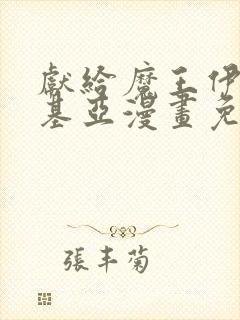 獻給魔王伊
基亞漫畫免
張丰菊